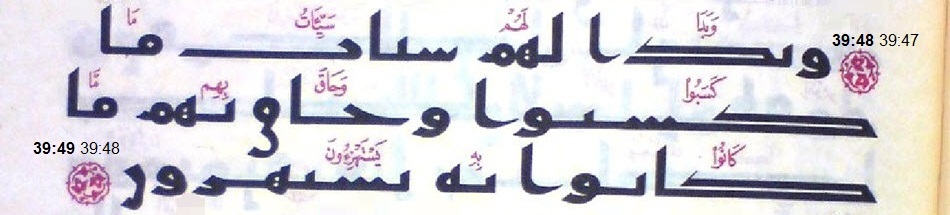 وَبَدَا لَهُمْ سَيِّئَاتُ مَا
39:48 39:47
وبدا لهم سيات ما
كَسَبُوا وَحَاقَ بِهِم مَّا
كسبوا وحاق بهم ما
39:49 39:48
كَانُوا بِهِ يَسْتَهْزِءُونَ
كانوا به يستهزون